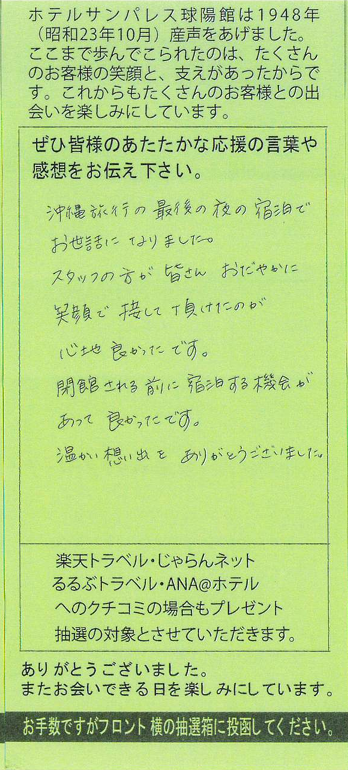 ホテルサンパレス球陽館は1948年
（昭和23年10月）産声をあげました。
ここまで歩んでこられたのは、たくさん
のお客様の笑顔と、支えがあったからで
す。これからもたくさんのお客様との出
会いを楽しみにしています。
ぜひ皆様のあたたかな応援の言葉や
感想をお伝え下さい。
沖縄旅行の最後の夜の宿泊で
お世話になりました。
スタッフの方が皆さんおだやかに
笑顔で接して頂けたのが
心地良かったです。
閉館される前に宿泊する機会が
あって良かったです。
温かい想い出をありがとうございました。
楽天トラベル・じゃらんネット
るるぶトラベル・ANA@ホテル
へのクチコミの場合もプレゼント
抽選の対象とさせていただきます。
ありがとうございました。
またお会いできる日を楽しみにしています。
お手数ですがフロント横の抽選箱に投函してください。